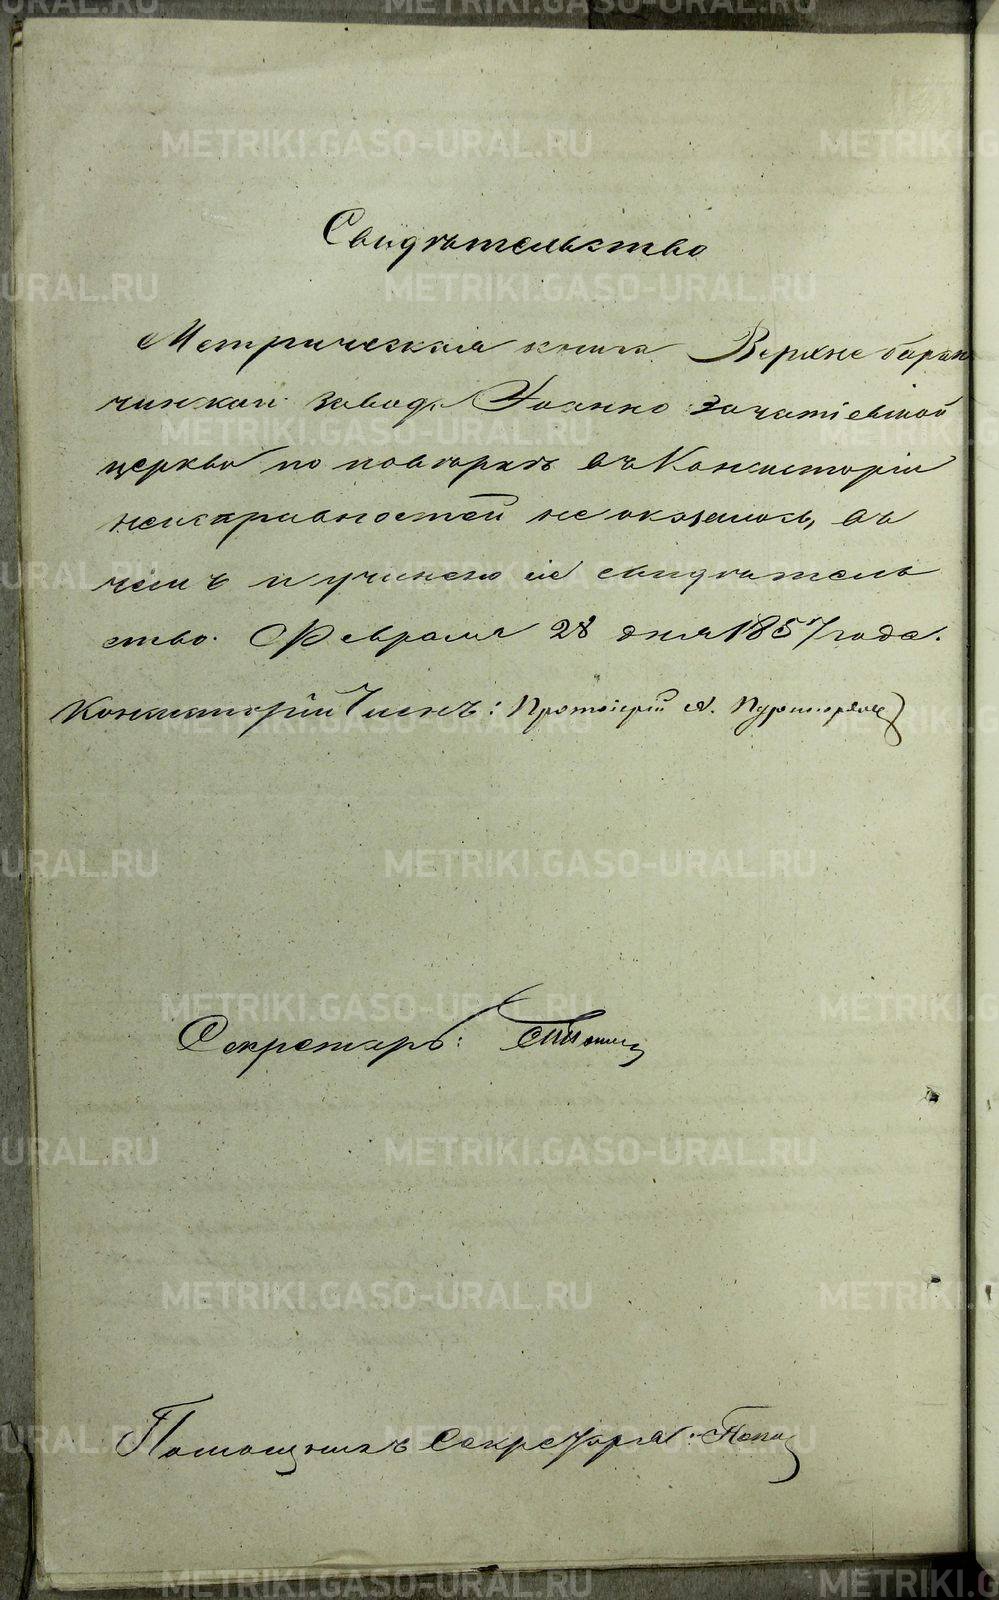 Свидѣтельство
Метрическая книга Верхне баран
чинской завод. Іоанно Зачатіевской
церкви по повѣркѣ въ Консисторіи
неисправностей не оказалось, въ
чемъ и учинено сіе свидѣтель
ство. Февраля 28 дня 1857 года.
Консисторіи Членъ: Протоіерей А.
Секретарь:
Помощникъ Секретаря: Попов
METRIKI.GASO-URAL.RU